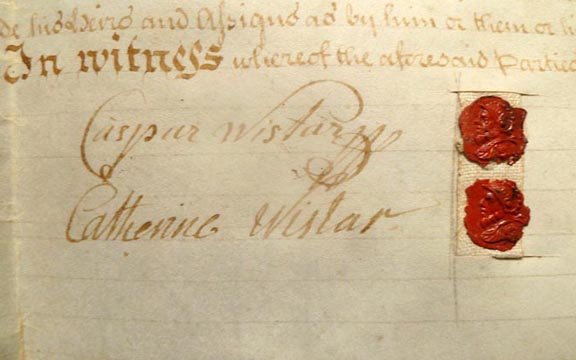 his Heirs and Assigns as by him or them or
In witness whereof the aforesaid Parties
Caspar Wistar
Catherine Wistar